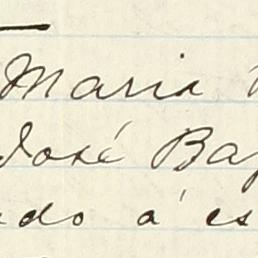 Maria
José Ba
do á es